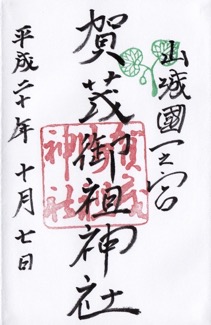 山城國一之宮
賀茂御祖神社
平成二十年十月七日
賀茂御祖神社